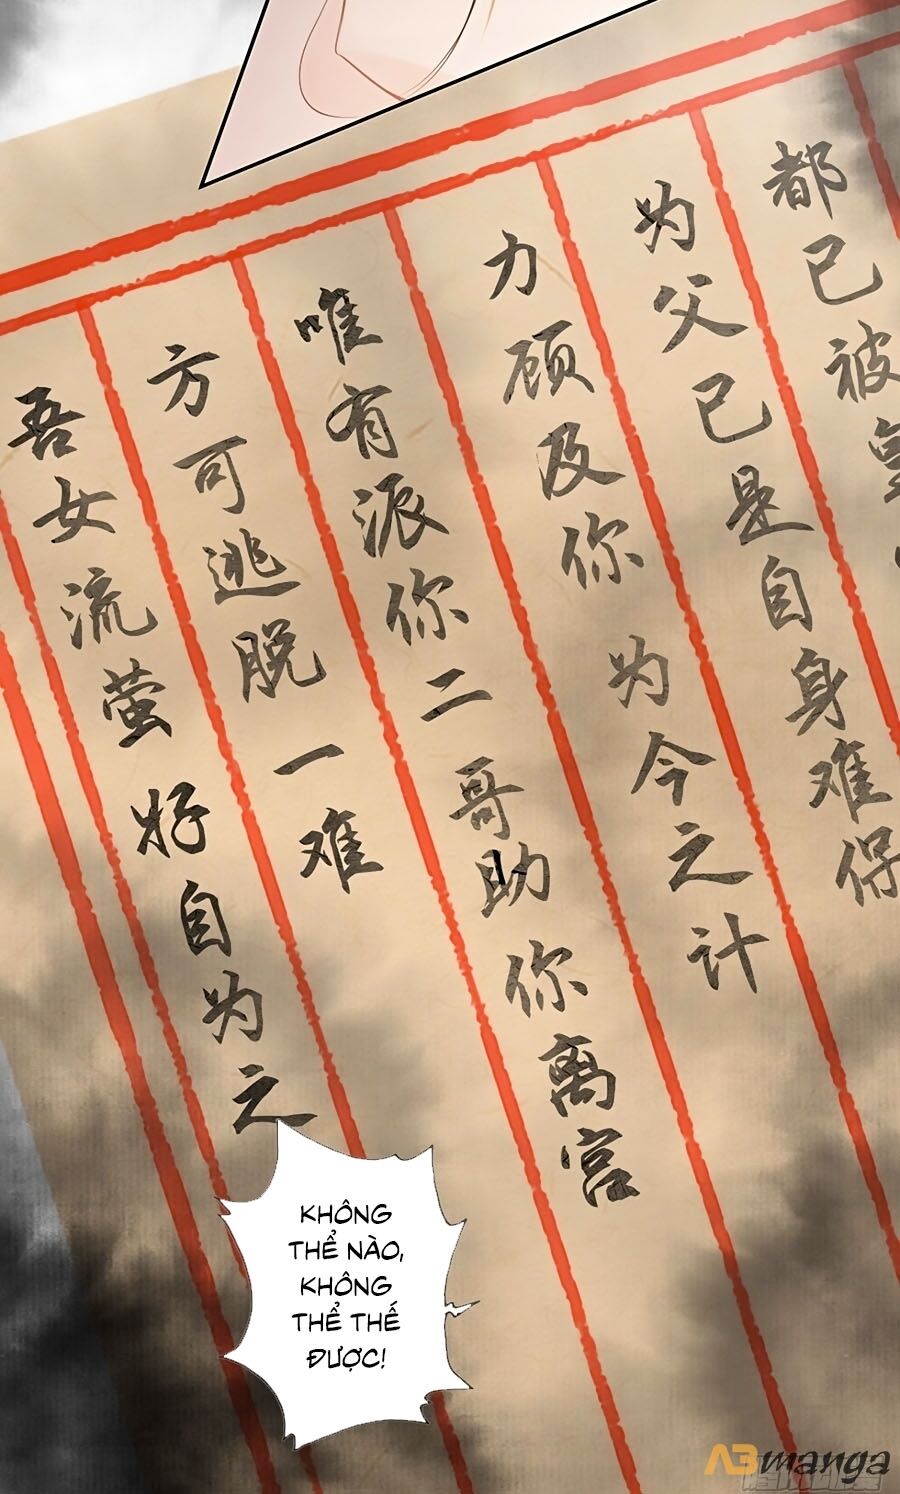 都已被
为父已是自身难保
力顾及你 为今之计
唯有派你二哥助你离宫
方可逃脱一难
吾女流萤好自为之
KHÔNG
THỂ NÀO,
KHÔNG
THỂ THẾ
ĐƯỢC!
A3manga